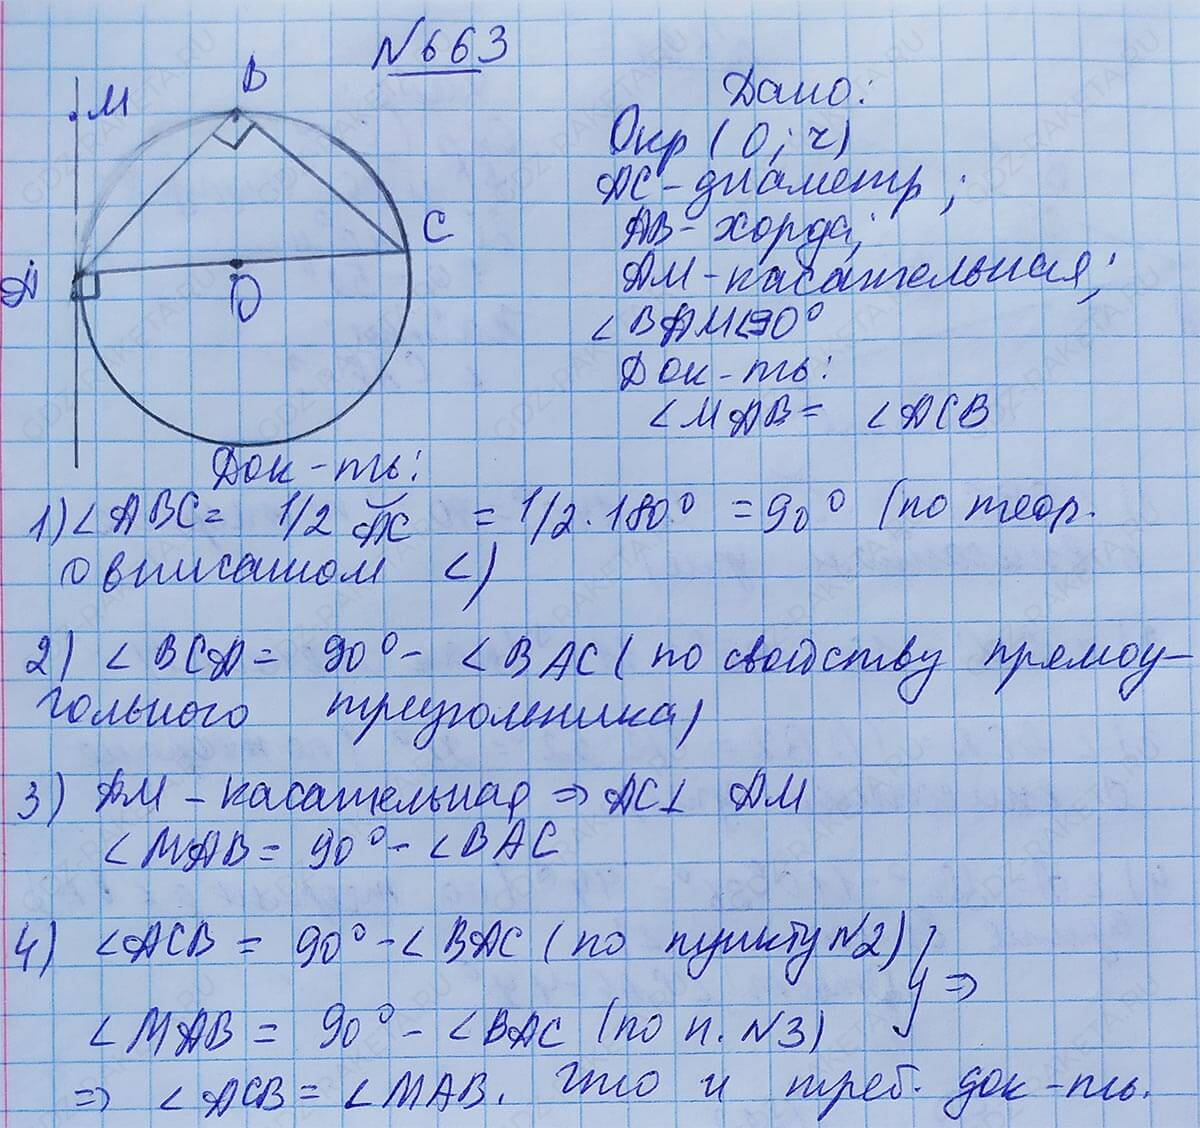 №663
B
M
C
A
O
Дано:
Окр (O; r)
AC - диаметр;
AB - хорда;
AM - касательная;
∠BAM<90°
Док-ть:
∠MAB = ∠ACB
Док-ть:
1) ∠ABC = 1/2 ◡AC = 1/2 · 180° = 90° (по теор.
о вписаном ∠)
2) ∠BCA = 90° - ∠BAC (по свойству прямоу-
гольного треугольника)
3) AM - касательная => AC⊥ AM
∠MAB = 90° - ∠BAC
4) ∠ACB = 90° - ∠BAC (по пункту №2) } =>
∠MAB = 90° - ∠BAC (по п. №3)
=> ∠ACB = ∠MAB. Что и треб. док-ть.
GDZ-RAKETA.RU